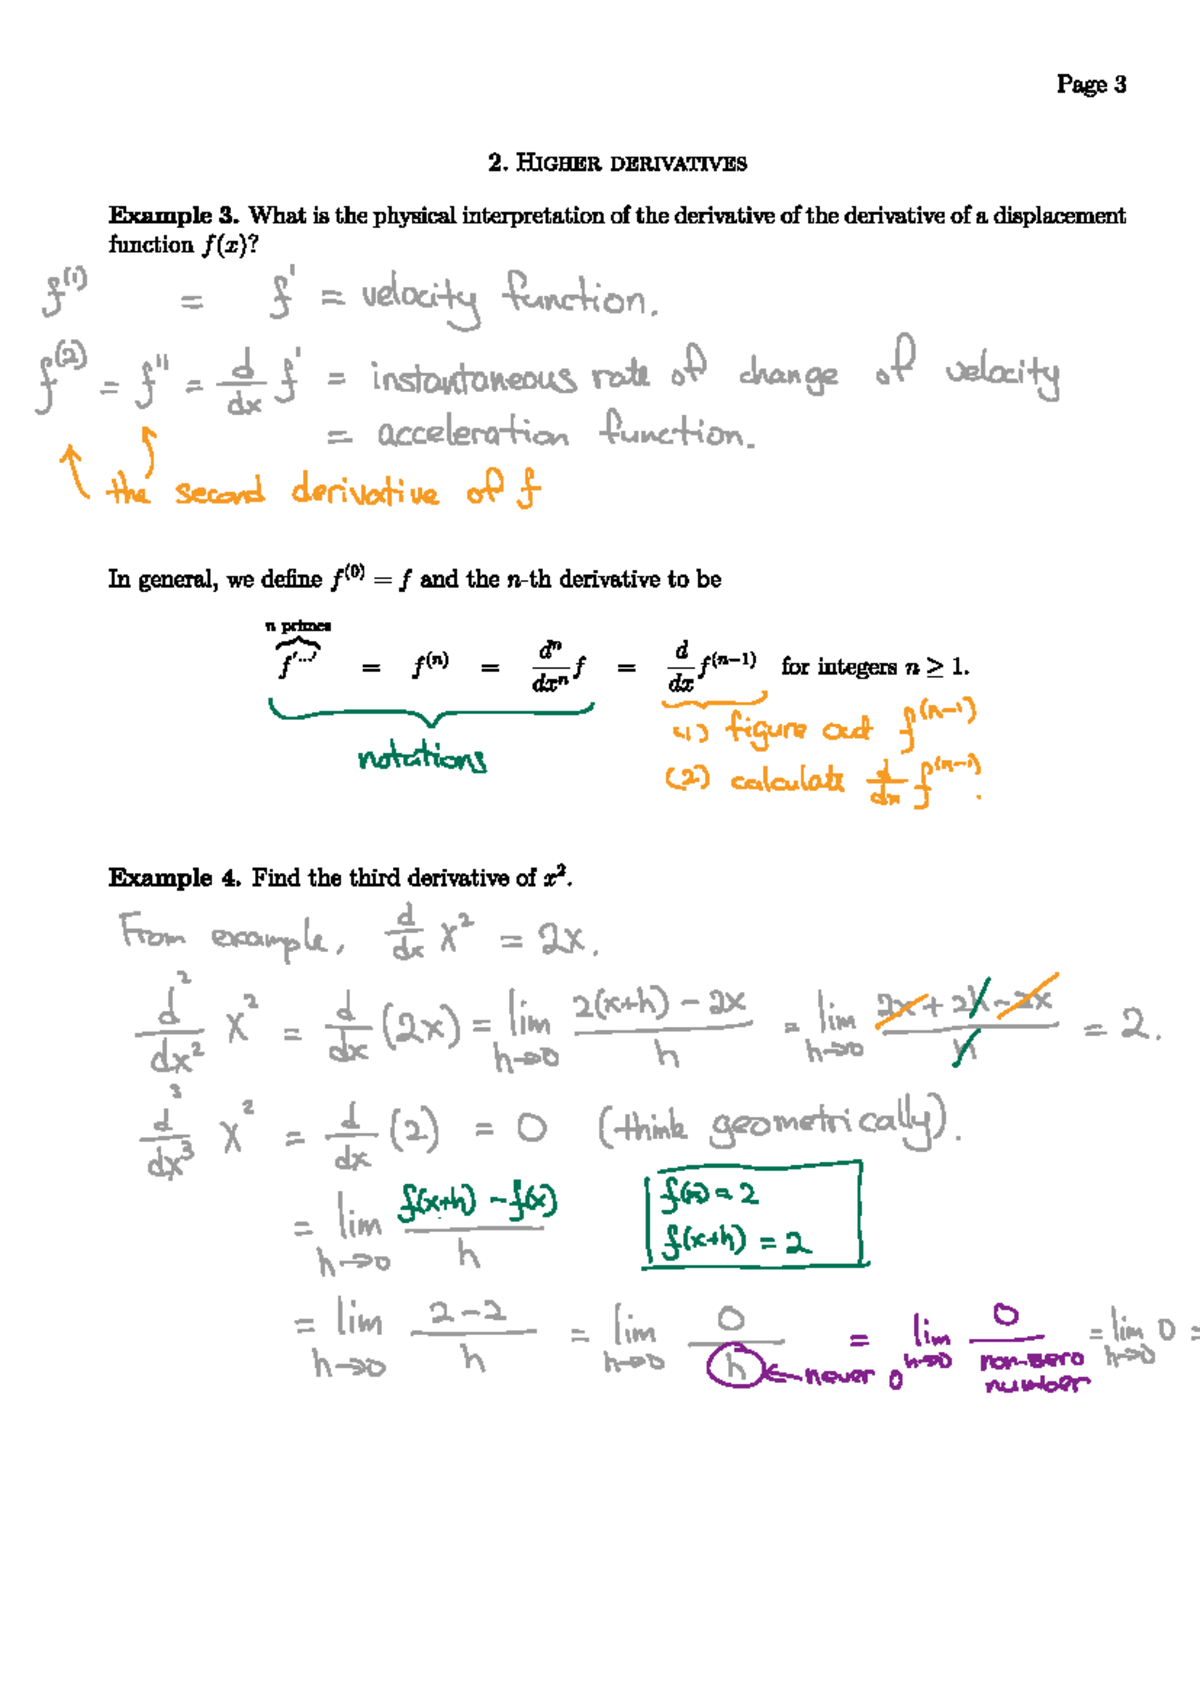 Page 3
2. HIGHER DERIVATIVES
Example 3. What is the physical interpretation of the derivative of the derivative of a displacement
function f(x)?
f^(1) = f' = velocity function.
f^(2) = f'' = d/dx f' = instantaneous rate of change of velocity
= acceleration function.
the second derivative of f
In general, we define f^(0) = f and the n-th derivative to be
n primes
f^'...' = f^(n) = d^n/dx^n f = d/dx f^(n−1) for integers n ≥ 1.
notations
(1) figure out f^(n-1)
(2) calculate d/dx f^(n-1).
Example 4. Find the third derivative of x².
From example, d/dx x² = 2x.
d²/dx² x² = d/dx (2x) = lim h→0 (2(x+h) − 2x)/h = lim h→0 (2x + 2h − 2x)/h = 2.
d³/dx³ x² = d/dx (2) = 0 (think geometrically).
= lim h→0 (f(x+h) − f(x))/h
f(x) = 2
f(x+h) = 2
= lim h→0 (2−2)/h = lim h→0 0/h ← never 0 = lim h→0 0/non-zero number = lim h→0 0 =